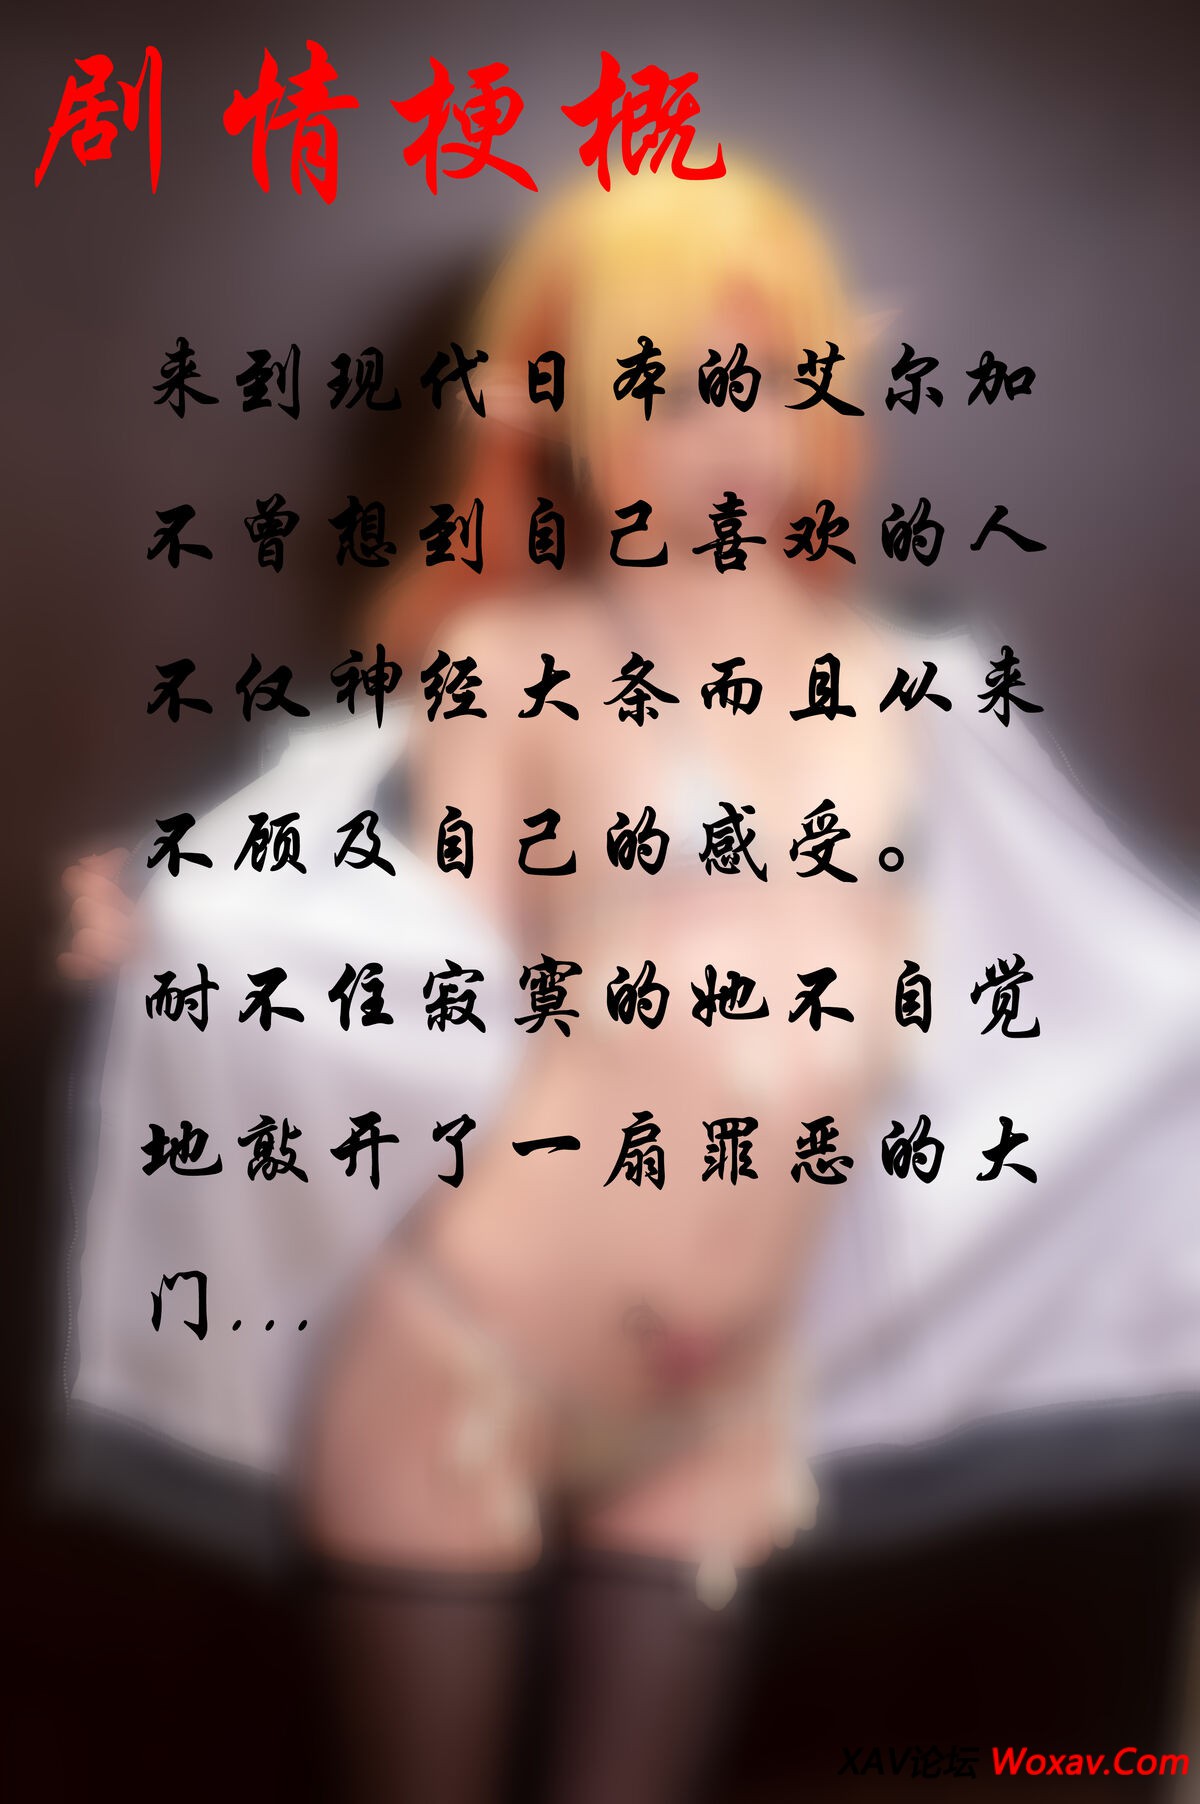 剧情梗概
来到现代日本的艾尔加
不曾想到自己喜欢的人
不仅神经大条而且从来
不顾及自己的感受。
耐不住寂寞的她不自觉
地敲开了一扇罪恶的大
门...
XAV论坛 Woxav.Com